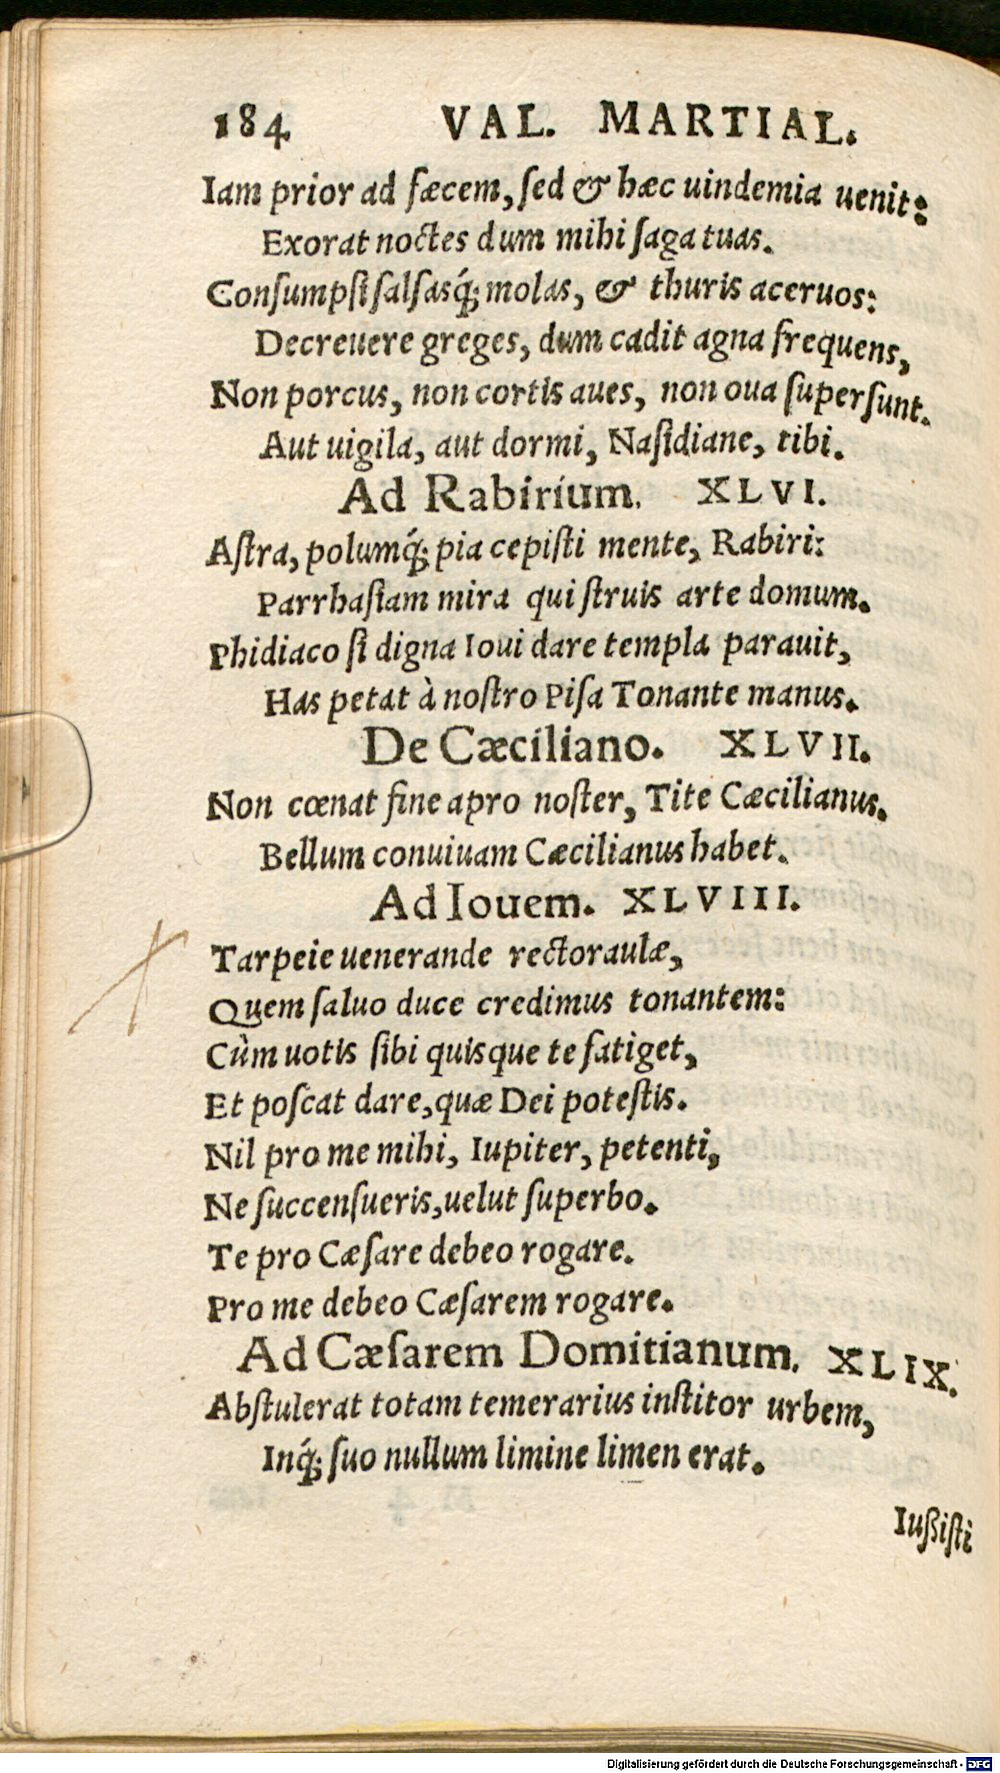 184 VAL. MARTIAL.
Iam prior ad fæcem, ſed & hæc uindemia uenit:
Exorat noctes dum mihi ſaga tuas.
Conſumpſi ſalſasq́; molas, & thuris aceruos:
Decreuere greges, dum cadit agna frequens,
Non porcus, non cortis aues, non oua ſuperſunt.
Aut uigila, aut dormi, Naſidiane, tibi.
Ad Rabirium. XLVI.
Aſtra, polumq́; pia cepiſti mente, Rabiri:
Parrhaſiam mira qui ſtruis arte domum.
Phidiaco ſi digna Ioui dare templa parauit,
Has petat à noſtro Piſa Tonante manus.
De Cæciliano. XLVII.
Non cœnat ſine apro noſter, Tite Cæcilianus.
Bellum conuiuam Cæcilianus habet.
Ad Iouem. XLVIII.
Tarpeie uenerande rector aulæ,
Quem ſaluo duce credimus tonantem:
Cùm uotis ſibi quisque te fatiget,
Et poſcat dare, quæ Dei poteſtis.
Nil pro me mihi, Iupiter, petenti,
Ne ſuccenſueris, uelut ſuperbo.
Te pro Cæſare debeo rogare.
Pro me debeo Cæſarem rogare.
Ad Cæſarem Domitianum. XLIX.
Abſtulerat totam temerarius inſtitor urbem,
Inq́; ſuo nullum limine limen erat.
Iußiſti
Digitalisierung gefördert durch die Deutsche Forschungsgemeinschaft - DFG